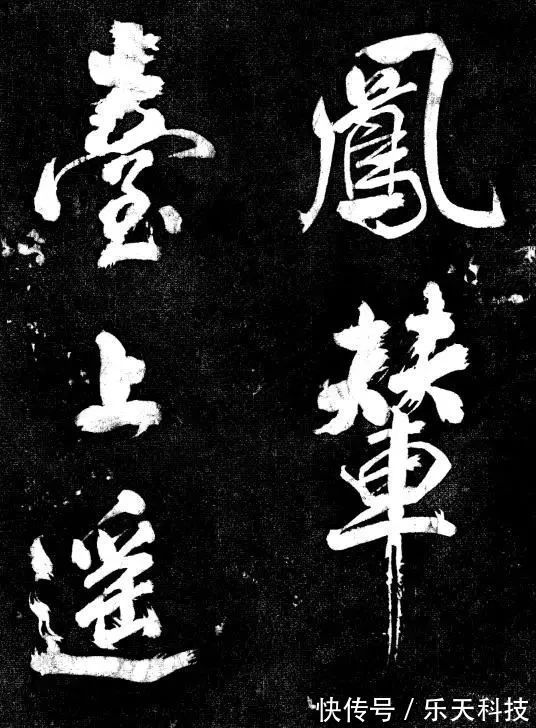 鳳輦
臺上遥
快传号/乐天科技